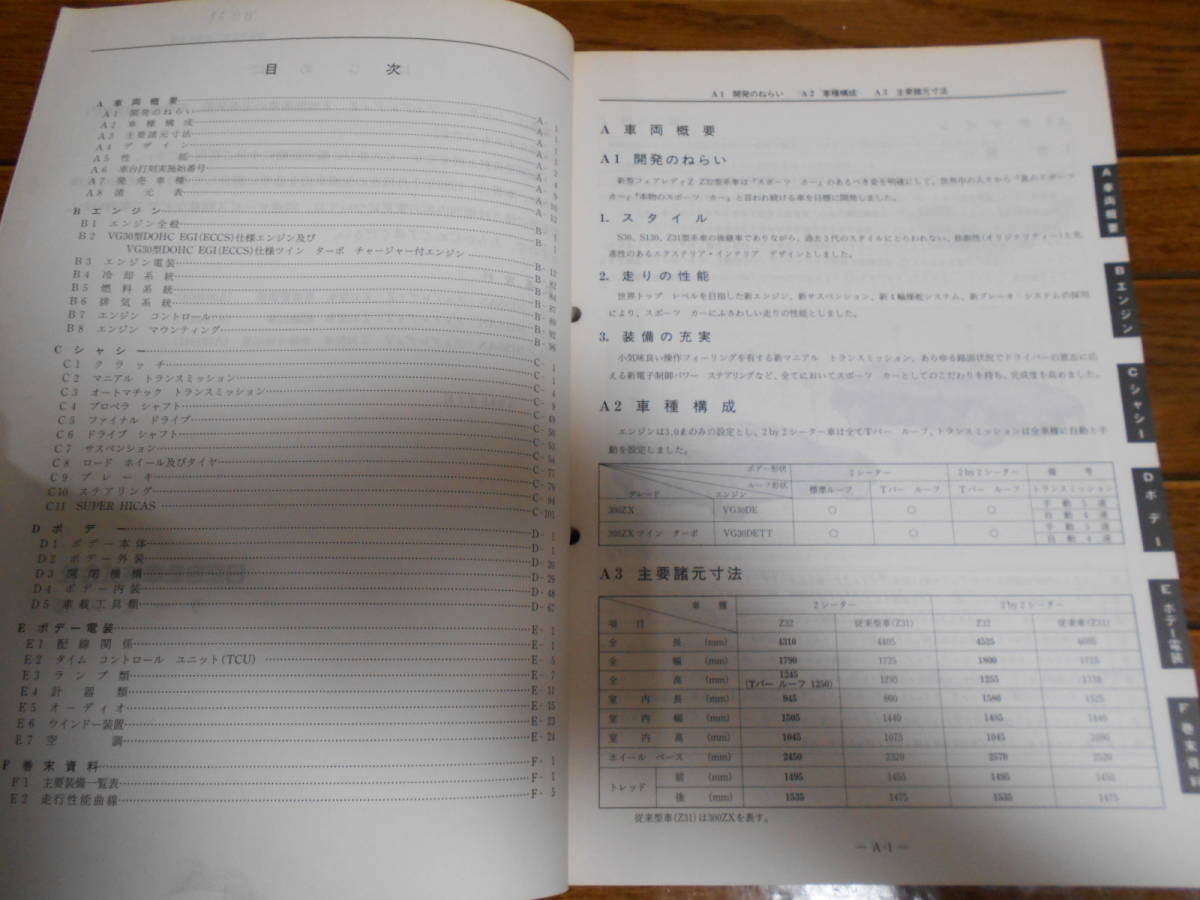 目 次
A 車両概要 A- 1
A1 開発のねらい 1
A2 車種構成 1
A3 主要諸元寸法 1
A4 デザイン
A5 性 能
A6 車台打刻実施始番号
A7 発売車種
A8 諸元表
B エンジン B- 1
B1 エンジン全般 B- 1
B2 VG30型DOHC EGI(ECCS)仕様エンジン及び
VG30型DOHC EGI(ECCS)仕様ツイン ターボ チャージャー付エンジン B- 12
B3 エンジン電装 B- 82
B4 冷却系統 B- 84
B5 燃料系統 B- 87
B6 排気系統 B- 89
B7 エンジン コントロール B- 92
B8 エンジン マウンティング B- 96
C シャシー C- 1
C1 クラッチ C- 1
C2 マニアル トランスミッション C- 4
C3 オートマチック トランスミッション C- 8
C4 プロペラ シャフト C- 49
C5 ファイナル ドライブ C- 50
C6 ドライブ シャフト C- 53
C7 サスペンション C- 54
C8 ロード ホイール及びタイヤ C- 75
C9 ブレーキ C- 76
C10 ステアリング C- 84
C11 SUPER HICAS C-101
D ボデー D- 1
D1 ボデー本体 D- 1
D2 ボデー外装 D- 20
D3 開閉機構 D- 29
D4 ボデー内装 D- 48
D5 車載工具類 D- 62
E ボデー電装 E- 1
E1 配線関係 E- 1
E2 タイム コントロール ユニット(TCU) E- 5
E3 ランプ類 E- 7
E4 計器類 E- 11
E5 オーディオ E- 15
E6 ウインドー装置 E- 23
E7 空 調 E- 24
F 巻末資料 F- 1
F1 主要装備一覧表 F- 1
F2 走行性能曲線 F- 5
A1 開発のねらい A2 車種構成 A3 主要諸元寸法
A 車両概要
A1 開発のねらい
新型フェアレディZ Z32型系車は『スポーツ カー』のあるべき姿を明確にして、世界中の人々から『真のスポーツ
カー』『本物のスポーツ カー』と言われ続ける車を目標に開発しました。
1. スタイル
S30、S130、Z31型系車の後継車でありながら、過去3代のスタイルにとらわれない、独創性(オリジナリティー)と先
進性のあるエクステリア・インテリア デザインとしました。
2. 走りの性能
世界トップ レベルを目指した新エンジン、新サスペンション、新4輪操舵システム、新ブレーキ システムの採用
により、スポーツ カーにふさわしい走りの性能としました。
3. 装備の充実
小気味良い操作フィーリングを有する新マニアル トランスミッション、あらゆる路面状況でドライバーの意志に応
える新電子制御パワー ステアリングなど、全てにおいてスポーツ カーとしてのこだわりを持ち、完成度を高めました。
A2 車種構成
エンジンは3.0ℓのみの設定とし、2by2シーター車は全てTバー ルーフ、トランスミッションは全車種に自動と手
動を設定しました。
ボデー形状 2シーター 2by2シーター 備 考
ルーフ形状
グレード エンジン 標準ルーフ Tバー ルーフ Tバー ルーフ トランスミッション
300ZX VG30DE ○ ○ ○ 手動5速
自動4速
300ZXツイン ターボ VG30DETT ○ ○ ○ 手動5速
自動4速
A3 主要諸元寸法
車 種 2シーター 2by2シーター
項 目 Z32 従来型車(Z31) Z32 従来型車(Z31)
全 長 (mm) 4310 4405 4525 4605
全 幅 (mm) 1790 1725 1800 1725
全 高 (mm) 1245 (Tバー ルーフ 1250) 1295 1255 1310
室内長 (mm) 945 860 1580 1525
室内幅 (mm) 1505 1440 1485 1440
室内高 (mm) 1045 1075 1045 1090
ホイール ベース (mm) 2450 2320 2570 2520
トレッド 前 (mm) 1495 1455 1495 1455
後 (mm) 1535 1475 1535 1475
従来型車(Z31)は300ZXを表す。
— A-1 —
A 車両概要
B エンジン
C シャシー
D ボデー
E ボデー電装
F 巻末資料